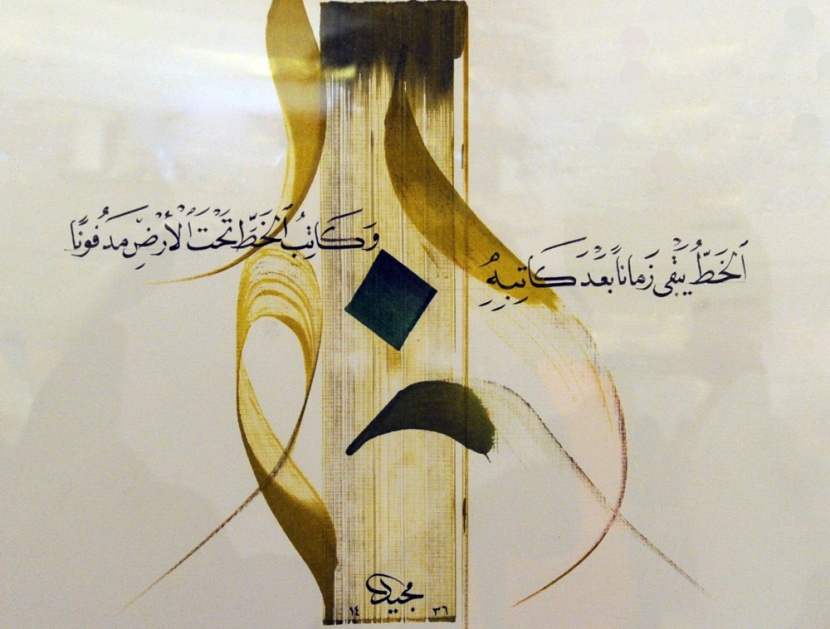 اَلْخَطُّ يَبْقَى زَمَاناً بَعْدَ كَاتِبِهِ
وَكَاتِبُ الْخَطِّ تَحْتَ الْأَرْضِ مَدْفُونًا
مجيد
١٤ ٣٦